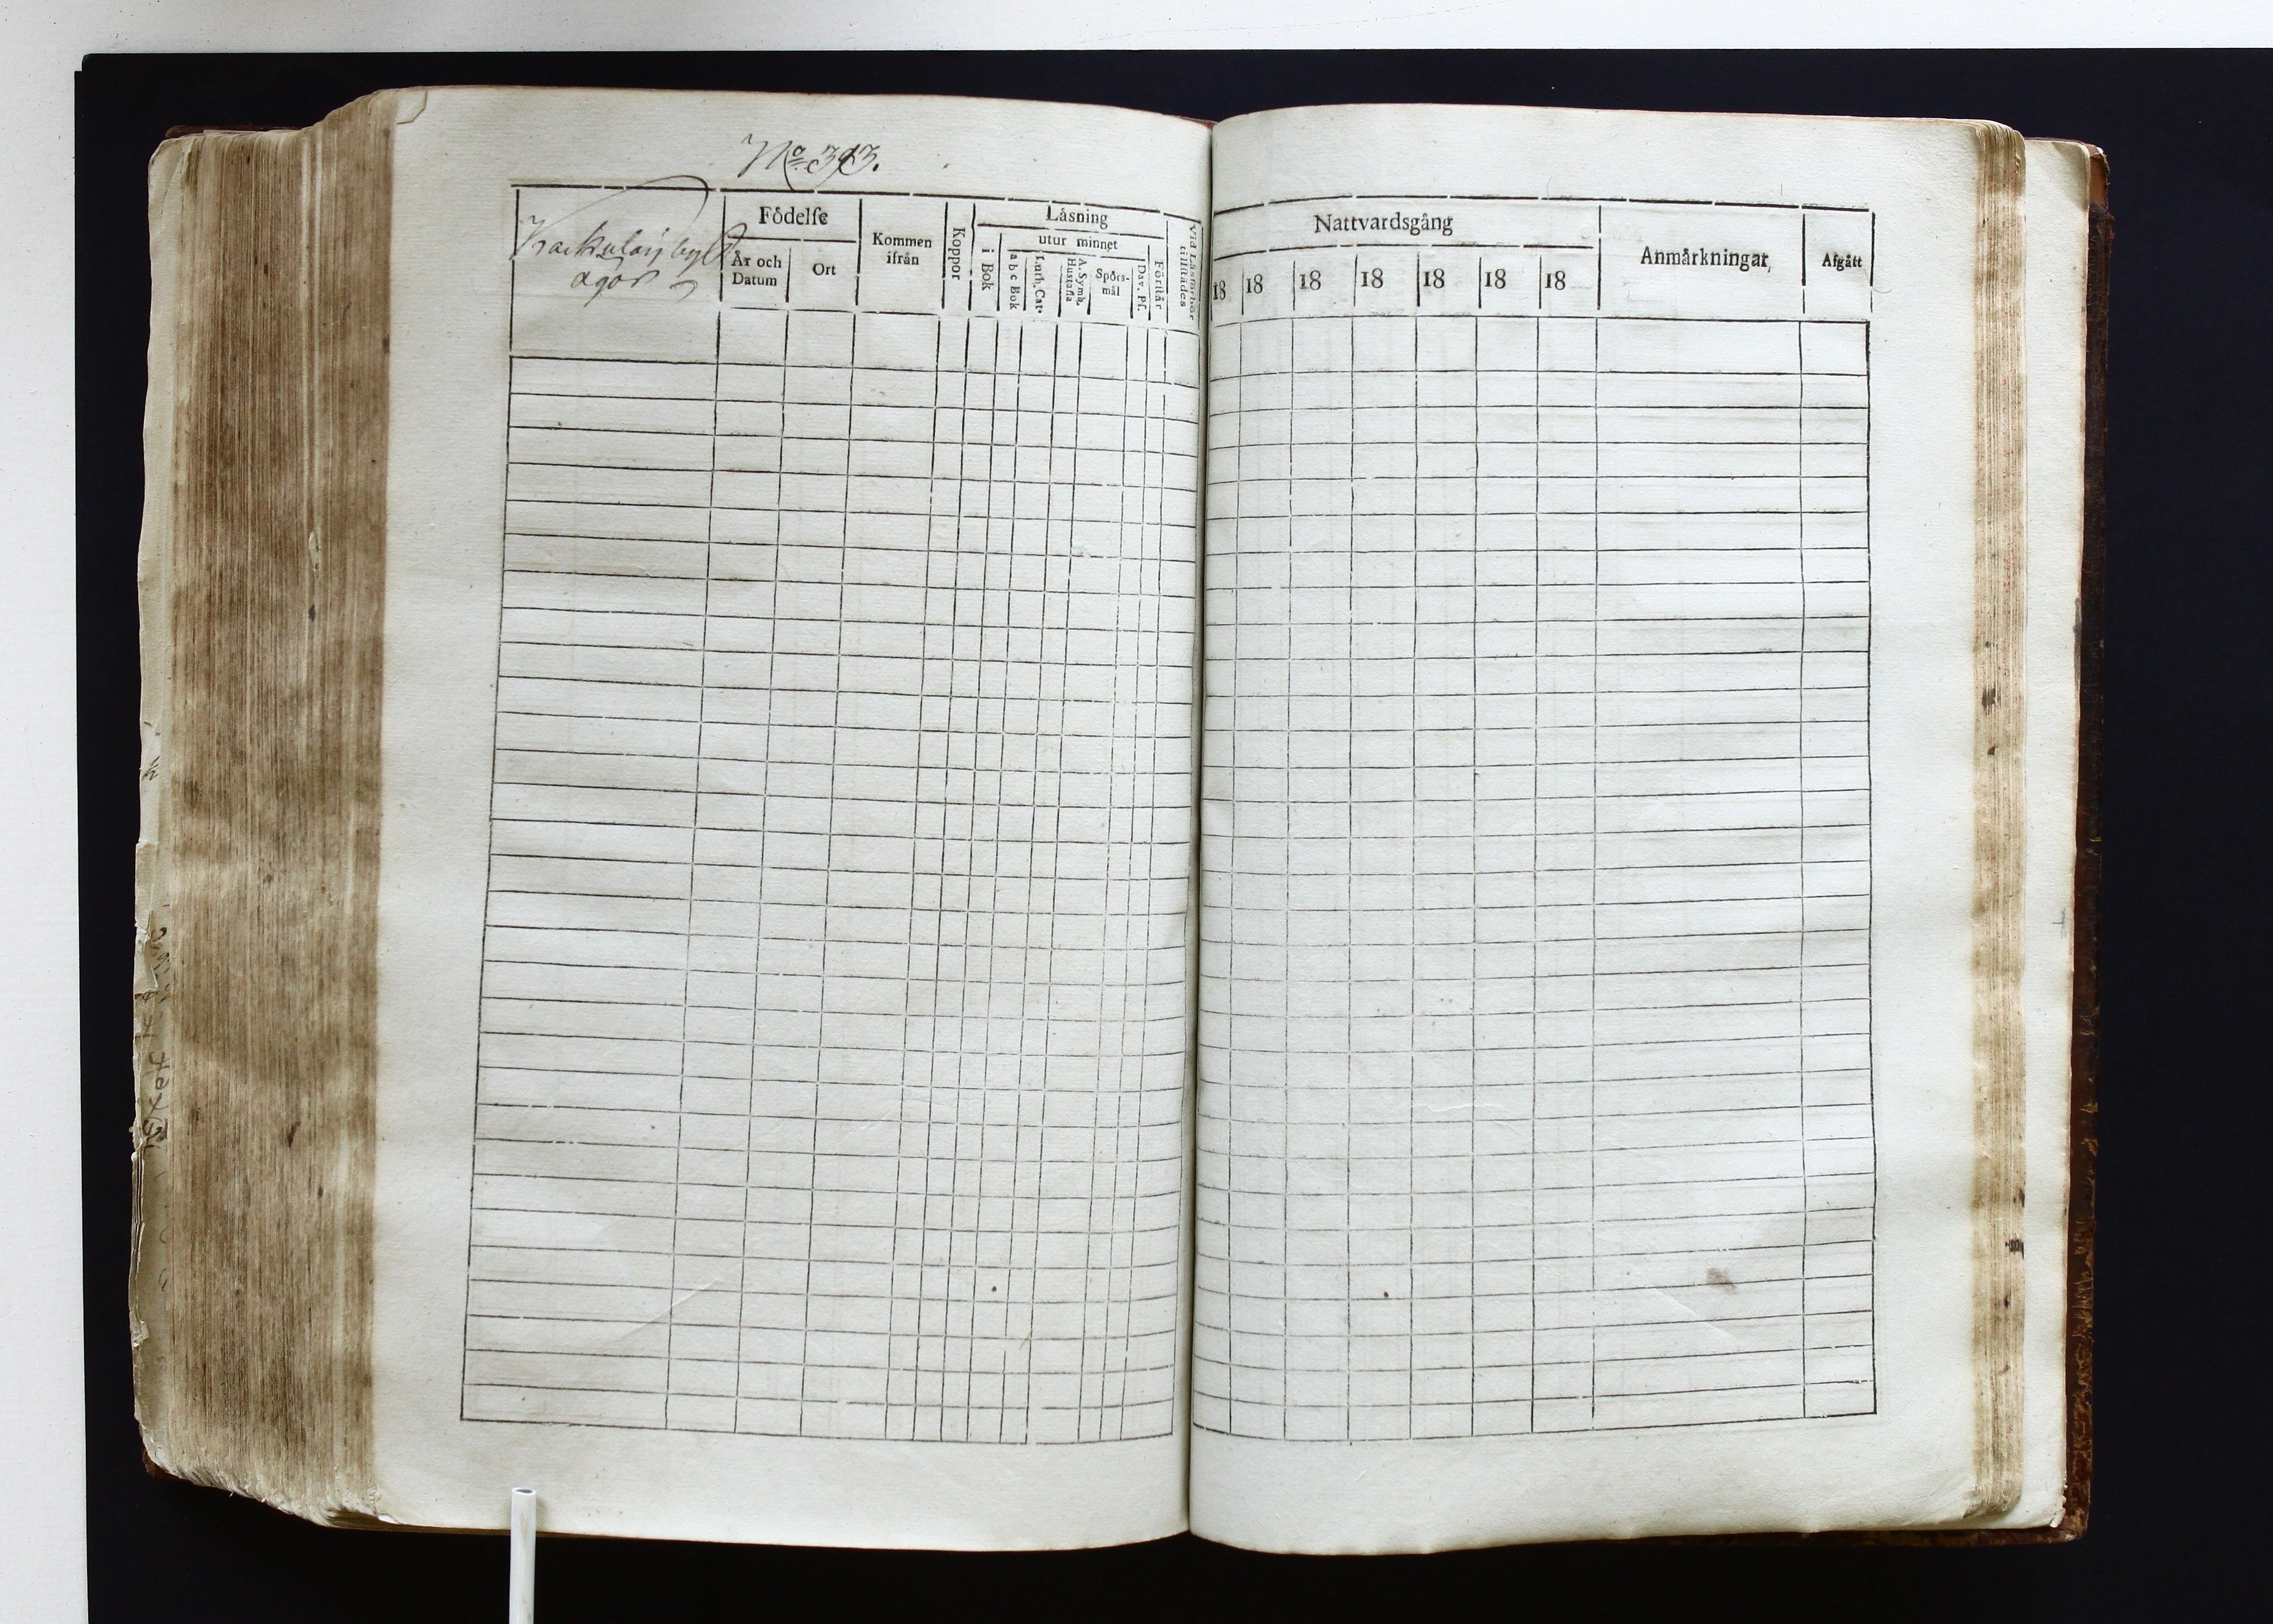 No 393.
ägor
Födelse
År och Datum
Ort
Kommen ifrån
Koppor
Läsning
i Bok
utur minnet
a b c Bok
Luth. Cat.
A. Symb. Hustafla
Spörs-mål
Dav. Ps.
Förstår
Vid Läsförhör tillstädes
Nattvardsgång
18 18 18 18 18 18 18
Anmärkningar
Afgått